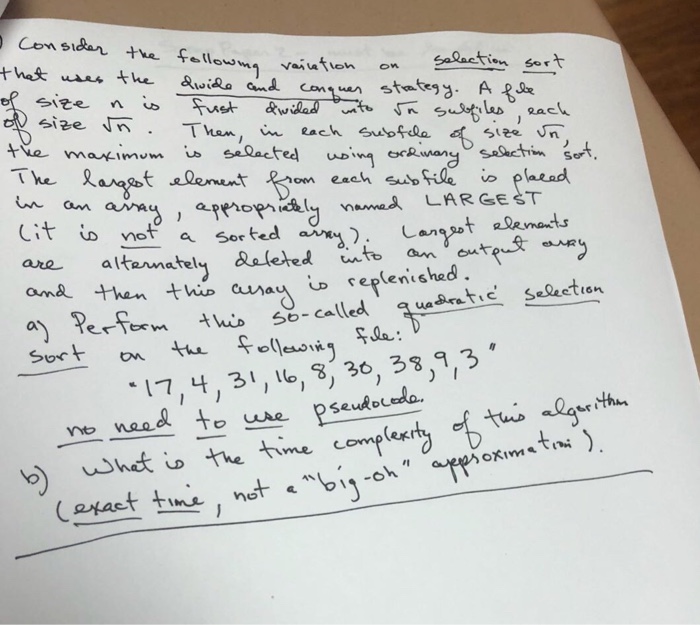 Consider the following variation on selection sort
that uses the divide and conquer strategy. A file
of size n is first divided into √n subfiles, each
of size √n. Then, in each subfile of size √n,
the maximum is selected using ordinary selection sort.
The largest element from each subfile is placed
in an array, appropriately named LARGEST
(it is not a sorted array). Largest elements
are alternately deleted into an output array
and then this array is replenished.
a) Perform this so-called quadratic selection
sort on the following file:
"17, 4, 31, 16, 8, 30, 38, 9, 3"
no need to use pseudocode.
b) What is the time complexity of this algorithm
(exact time, not a "big-oh" approximation).